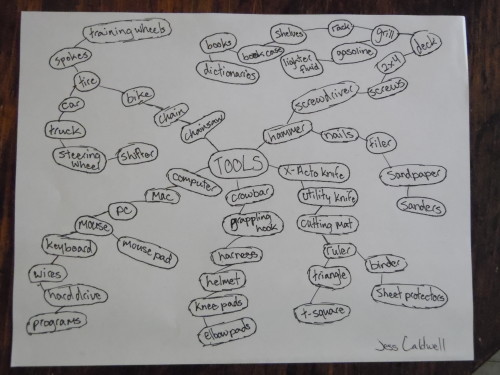 training wheels
spokes
tire
bike
chain
chainsaw
car
truck
steering
wheel
shifter
books
bookcase
dictionaries
shelves
rack
grill
deck
gasoline
lighter
fluid
2x4
screws
screwdriver
hammer
nails
filer
Sandpaper
Sanders
TOOLS
computer
Mac
PC
Mouse
mouse pad
keyboard
wires
hard drive
programs
crowbar
grappling
hook
harness
helmet
Knee pads
elbow pads
X-Acto Knife
utility Knife
Cutting Mat
ruler
triangle
t-square
binder
Sheet protectors
Jess Caldwell